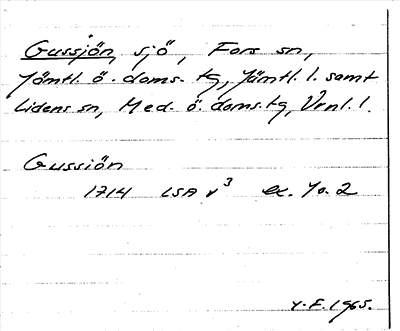 Gussjön, sjö, Fors sn,
Jämtl. ö. doms. tg, Jämtl. l. samt
Lidens sn, Med. ö. doms. tg, Vrnl. l.
Gussiön
1714 LSA v³ ex. Yo. 2
Y.F. 1965.